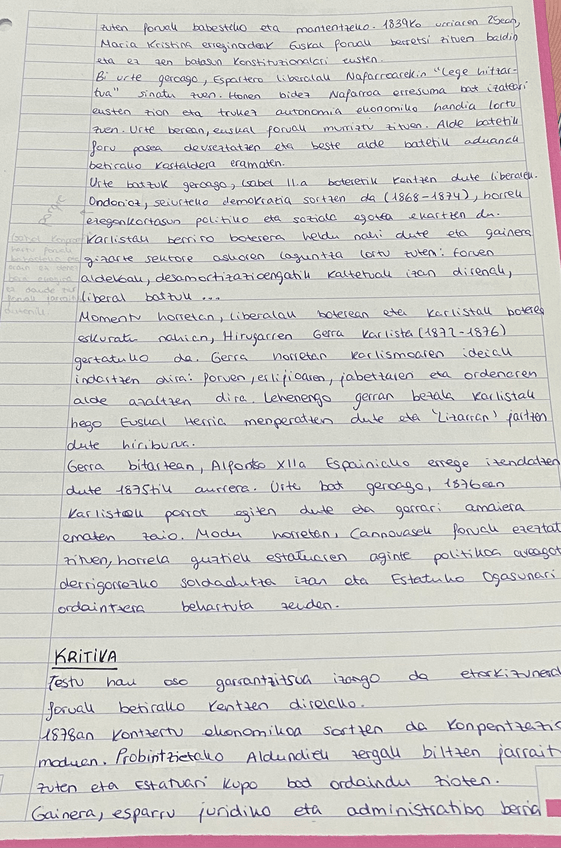 zuten foruak babesteko eta mantentzeko. 1839ko urriaren 25ean,
Maria Kristina erreginordeak Euskal foruak berretsi zituen baldin
eta ez zen batasun Konstituzionalari eusten.
Bi urte geroago, Espartero liberalak Nafarroarekin "Lege hitzar-
tua" sinatu zuen. Honen bidez Nafarroa erresuma bat izateari
eusten zion eta trukez autonomia ekonomiko handia lortu
zuen. Urte berean, euskal foruak murriztu zituen. Alde batetik
foru pasea deusezatzen eta beste alde batetik aduanak
betirako kostaldera eramaten.
Urte batzuk geroago, Isabel II.a boteretik kentzen dute liberalek.
Ondorioz, seiurteko demokratia sortzen da (1868-1874), horrek
ezegonkortasun politiko eta soziala egotea ekartzen du.
Karlistak berriro boterera heldu nahi dute eta gainera
gizarte sektore askoren laguntza lortu zuten: foruen
aldekoak, desamortizazioengatik kaltetuak izan direnak,
liberal batzuk ...
Momentu horretan, liberalak boterean eta karlistak boterea
eskuratu nahian, Hirugarren Gerra Karlista (1872-1876)
gertatuko da. Gerra horretan karlismoaren ideiak
indartzen dira: foruen, erlijioaren, jabetzaren eta ordenaren
alde azaltzen dira. Lehenengo gerran bezala karlistak
hego Euskal Herria menperatzen dute eta 'Lizarran' jartzen
dute hiriburua.
Gerra bitartean, Alfontso XIIa Espainiako errege izendatzen
dute 1875tik aurrera. Urte bat geroago, 1876ean
Karlistek porrot egiten dute eta gerrari amaiera
ematen zaio. Modu horretan, Cannovasek foruak ezeztat
zituen, horrela guztiek estatuaren aginte politikoa
derrigorrezko soldadutza izan eta Estatuko Ogasunari
ordaintzera behartuta zeuden.
KRITIKA
Testu hau oso garrantzitsua izango da etorkizunera
foruak betirako kentzen direlako.
1878an kontzertu ekonomikoa sortzen da konpentzazio
moduan. Probintzietako Aldundiek zergak biltzen jarrait
zuten eta Estatuari kupo bat ordaindu zioten.
Gainera, esparru juridiko eta administratibo berria